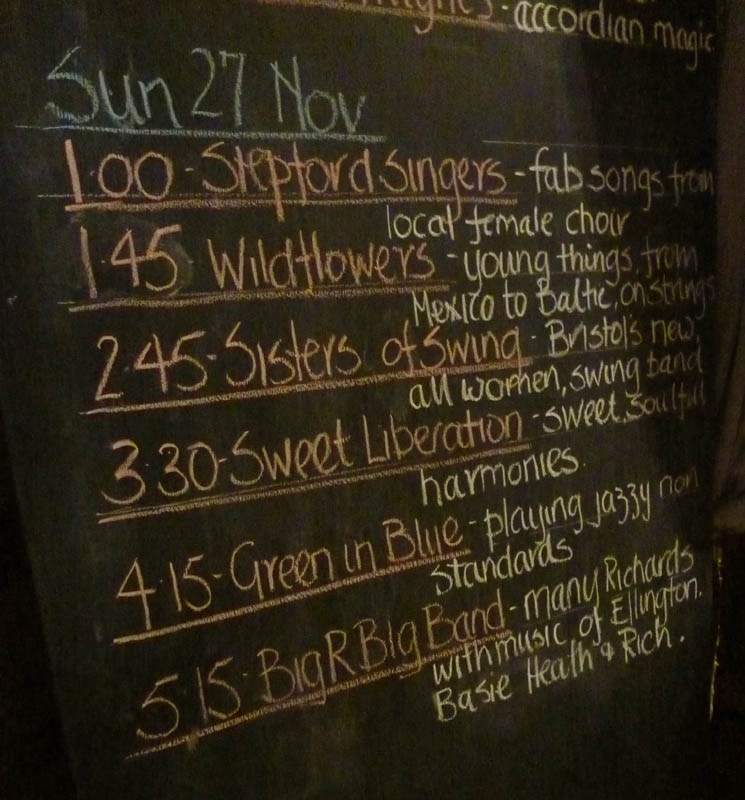 - accordian magic
Sun 27 Nov
1.00 - Stepford Singers - fab songs from
local female choir
1.45 Wildflowers - young things, from
Mexico to Baltic, on strings
2.45 - Sisters of Swing - Bristol's new,
all women, swing band
3.30 - Sweet Liberation - sweet, soulful
harmonies.
4.15 - Green in Blue - playing jazzy non
standards
5.15 - Big R Big Band - many Richards
with music of Ellington,
Basie Heath & Rich.